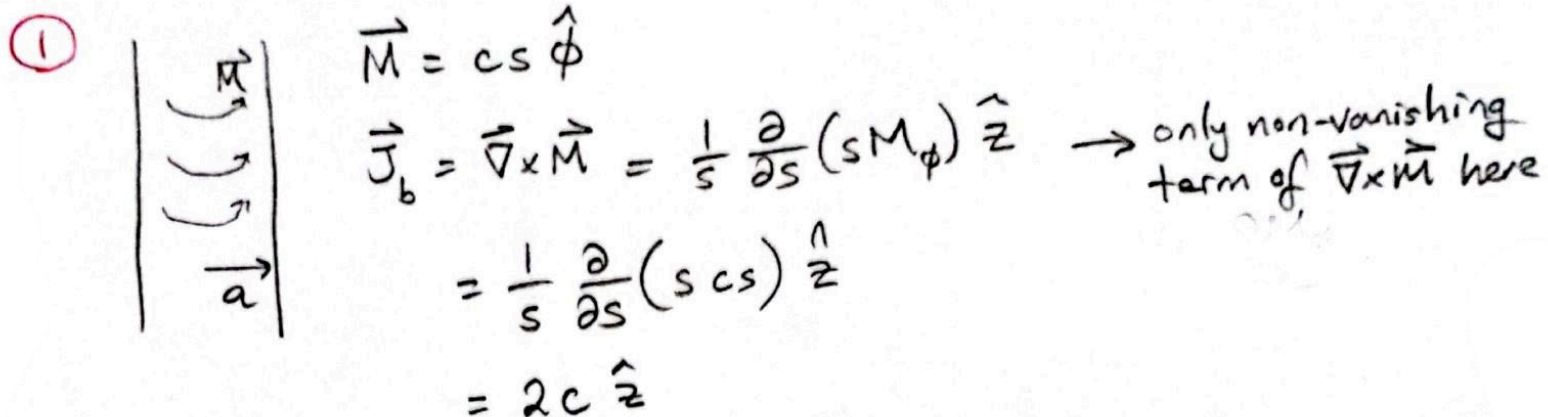 ①
M⃗
a
M⃗ = cs φ̂
J⃗_b = ∇⃗×M⃗ = 1/s ∂/∂s (sM_φ) ẑ → only non-vanishing
term of ∇⃗×M⃗ here
= 1/s ∂/∂s (s cs) ẑ
= 2c ẑ